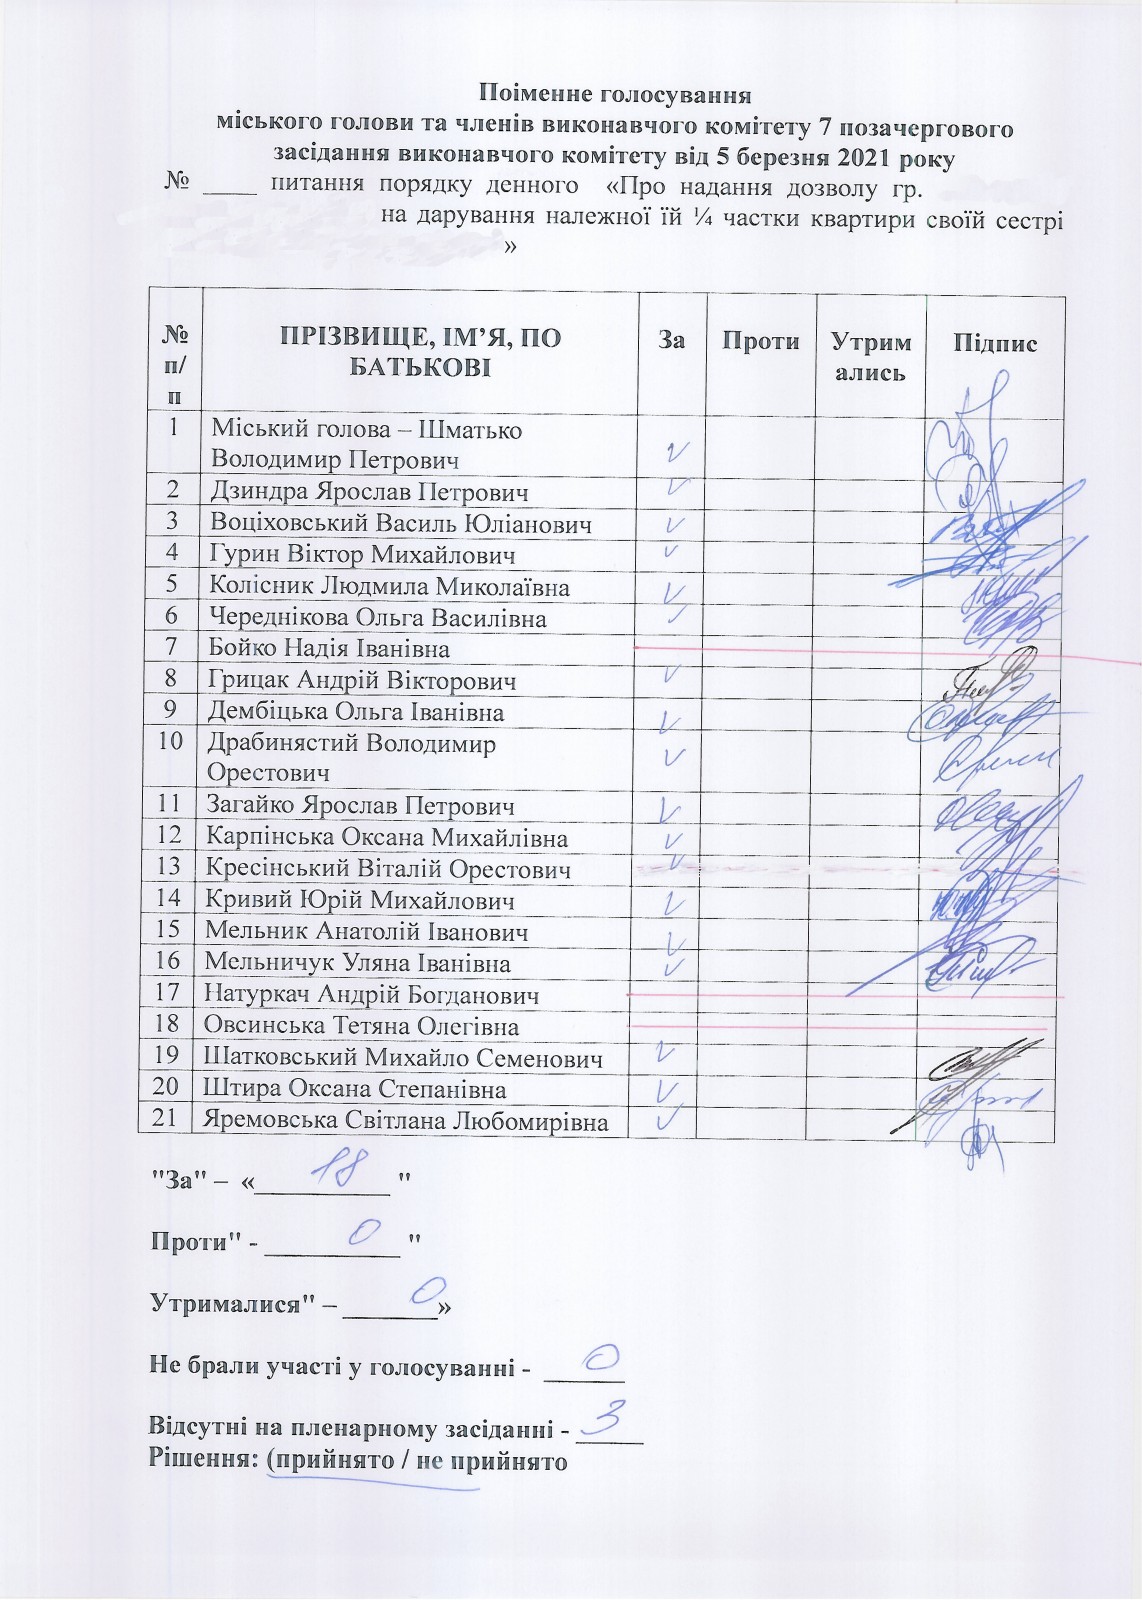 Поіменне голосування
міського голови та членів виконавчого комітету 7 позачергового
засідання виконавчого комітету від 5 березня 2021 року
№ ____ питання порядку денного «Про надання дозволу гр.
на дарування належної їй ¼ частки квартири своїй сестрі
»
№ п/п ПРІЗВИЩЕ, ІМ’Я, ПО БАТЬКОВІ За Проти Утримались Підпис
1 Міський голова – Шматько
Володимир Петрович v
2 Дзиндра Ярослав Петрович v
3 Воціховський Василь Юліанович v
4 Гурин Віктор Михайлович v
5 Колісник Людмила Миколаївна v
6 Череднікова Ольга Василівна v
7 Бойко Надія Іванівна
8 Грицак Андрій Вікторович v
9 Дембіцька Ольга Іванівна v
10 Драбинястий Володимир
Орестович v
11 Загайко Ярослав Петрович v
12 Карпінська Оксана Михайлівна v
13 Кресінський Віталій Орестович v
14 Кривий Юрій Михайлович v
15 Мельник Анатолій Іванович v
16 Мельничук Уляна Іванівна v
17 Натуркач Андрій Богданович
18 Овсинська Тетяна Олегівна
19 Шатковський Михайло Семенович v
20 Штира Оксана Степанівна v
21 Яремовська Світлана Любомирівна v
"За" – «__18__ "
Проти" - __0__ "
Утрималися" – __0__»
Не брали участі у голосуванні - __0__
Відсутні на пленарному засіданні - __3__
Рішення: (прийнято / не прийнято